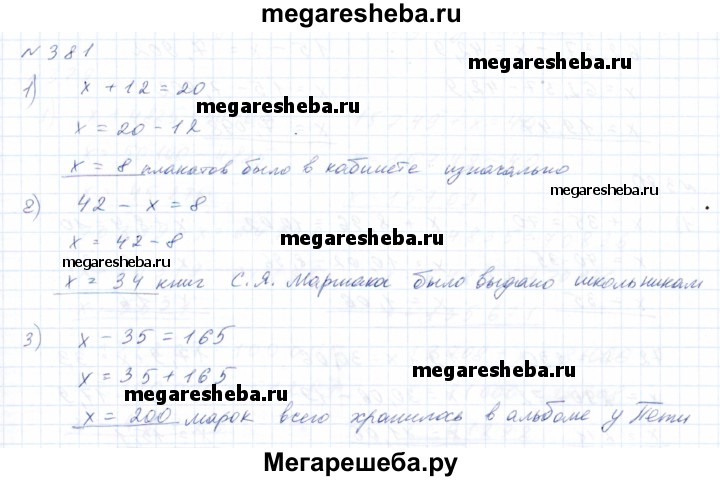 megaresheba.ru
№381
1) x + 12 = 20
megaresheba.ru
x = 20 - 12
x = 8 плакатов было в кабинете изначально
megaresheba.ru
2) 42 - x = 8
megaresheba.ru
x = 42 - 8
megaresheba.ru
x = 34 книг С.Я. Маршака было выдано школьникам
3) x - 35 = 165
megaresheba.ru
x = 35 + 165
megaresheba.ru
megaresheba.ru
x = 200 марок всего хранилось в альбоме у Пети
Мегарешеба.ру